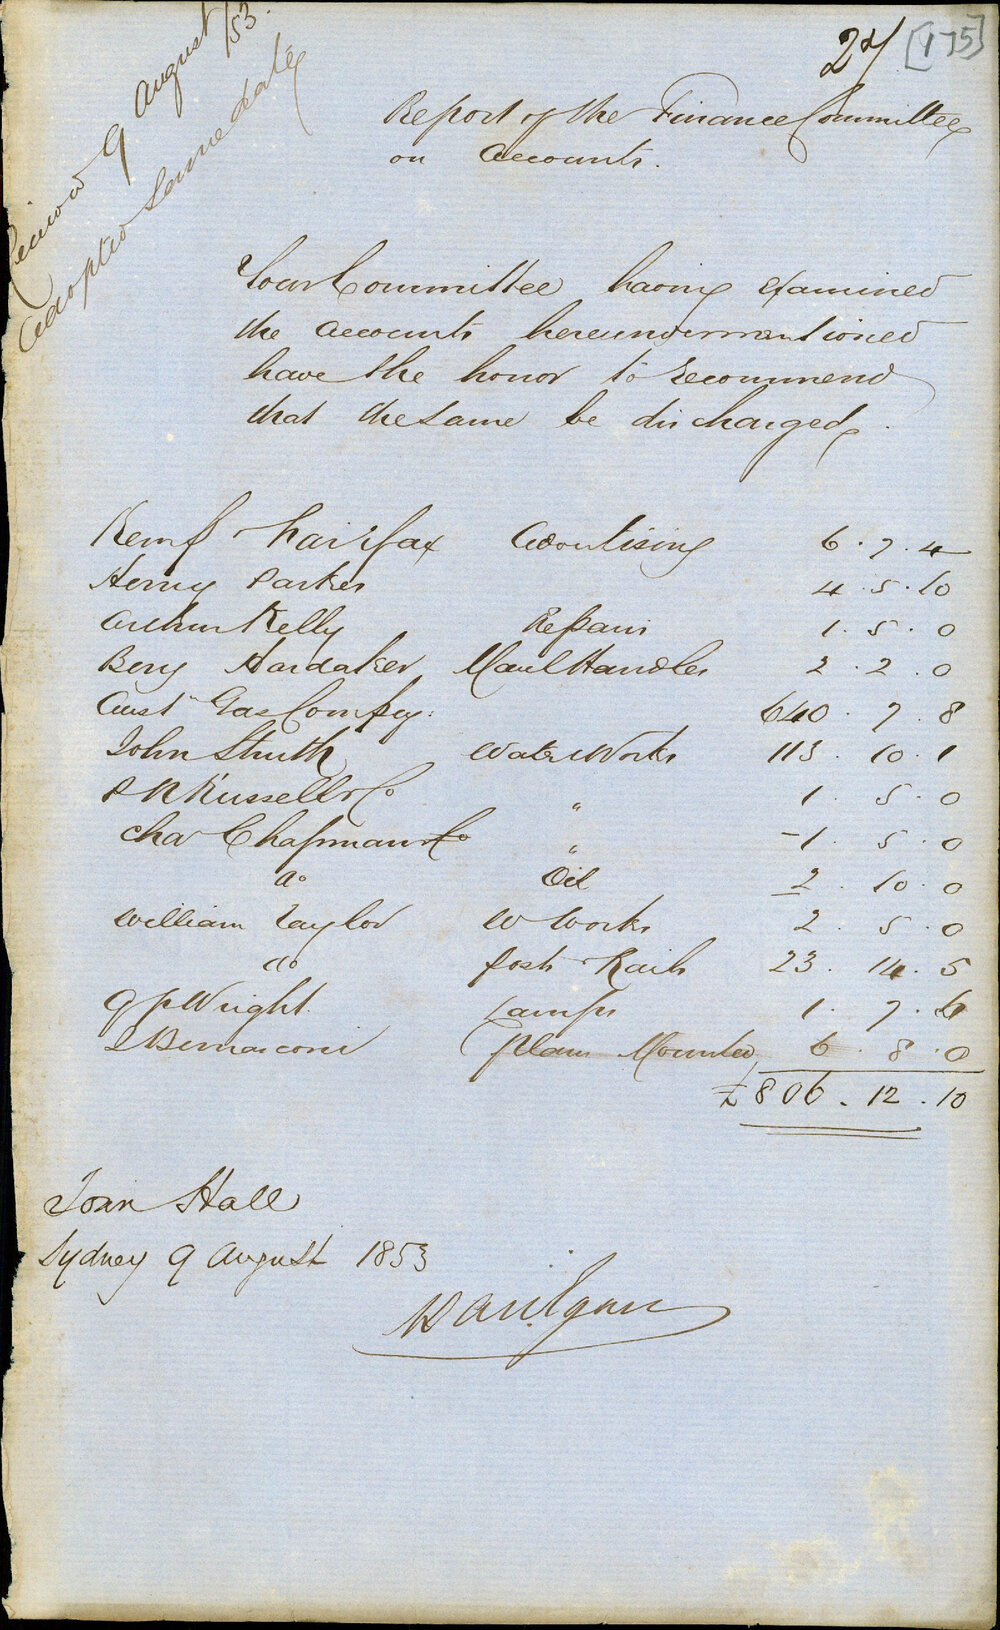 24 [175]
9 August /53.
adopted same date
Report of the Finance Committee
on Accounts.
Your Committee having examined
the accounts hereundermentioned
have the honor to recommend
that the same be discharged.
Kemp & Fairfax Advertising 6 . 7 . 4
Henry Parkes 4 . 5 . 10
Arthur Kelly Repairs 1 . 5 . 0
Benj Hardaker Maul Handles 2 . 2 . 0
Aust Gas Compy: 640 . 7 . 8
John Struth Water Works 113 . 10 . 1
P N Russell & Co " 1 . 5 . 0
Chas Chapman & Co " 1 . 5 . 0
Do Oil 2 . 10 . 0
William Taylor W Works 2 . 5 . 0
Do Posts & Rails 23 . 14 . 5
G P Wright Lamps 1 . 7 . 6
Bernasconi Plan Mounted 6 . 8 . 0
£806 . 12 . 10
Town Hall
Sydney 9 August 1853